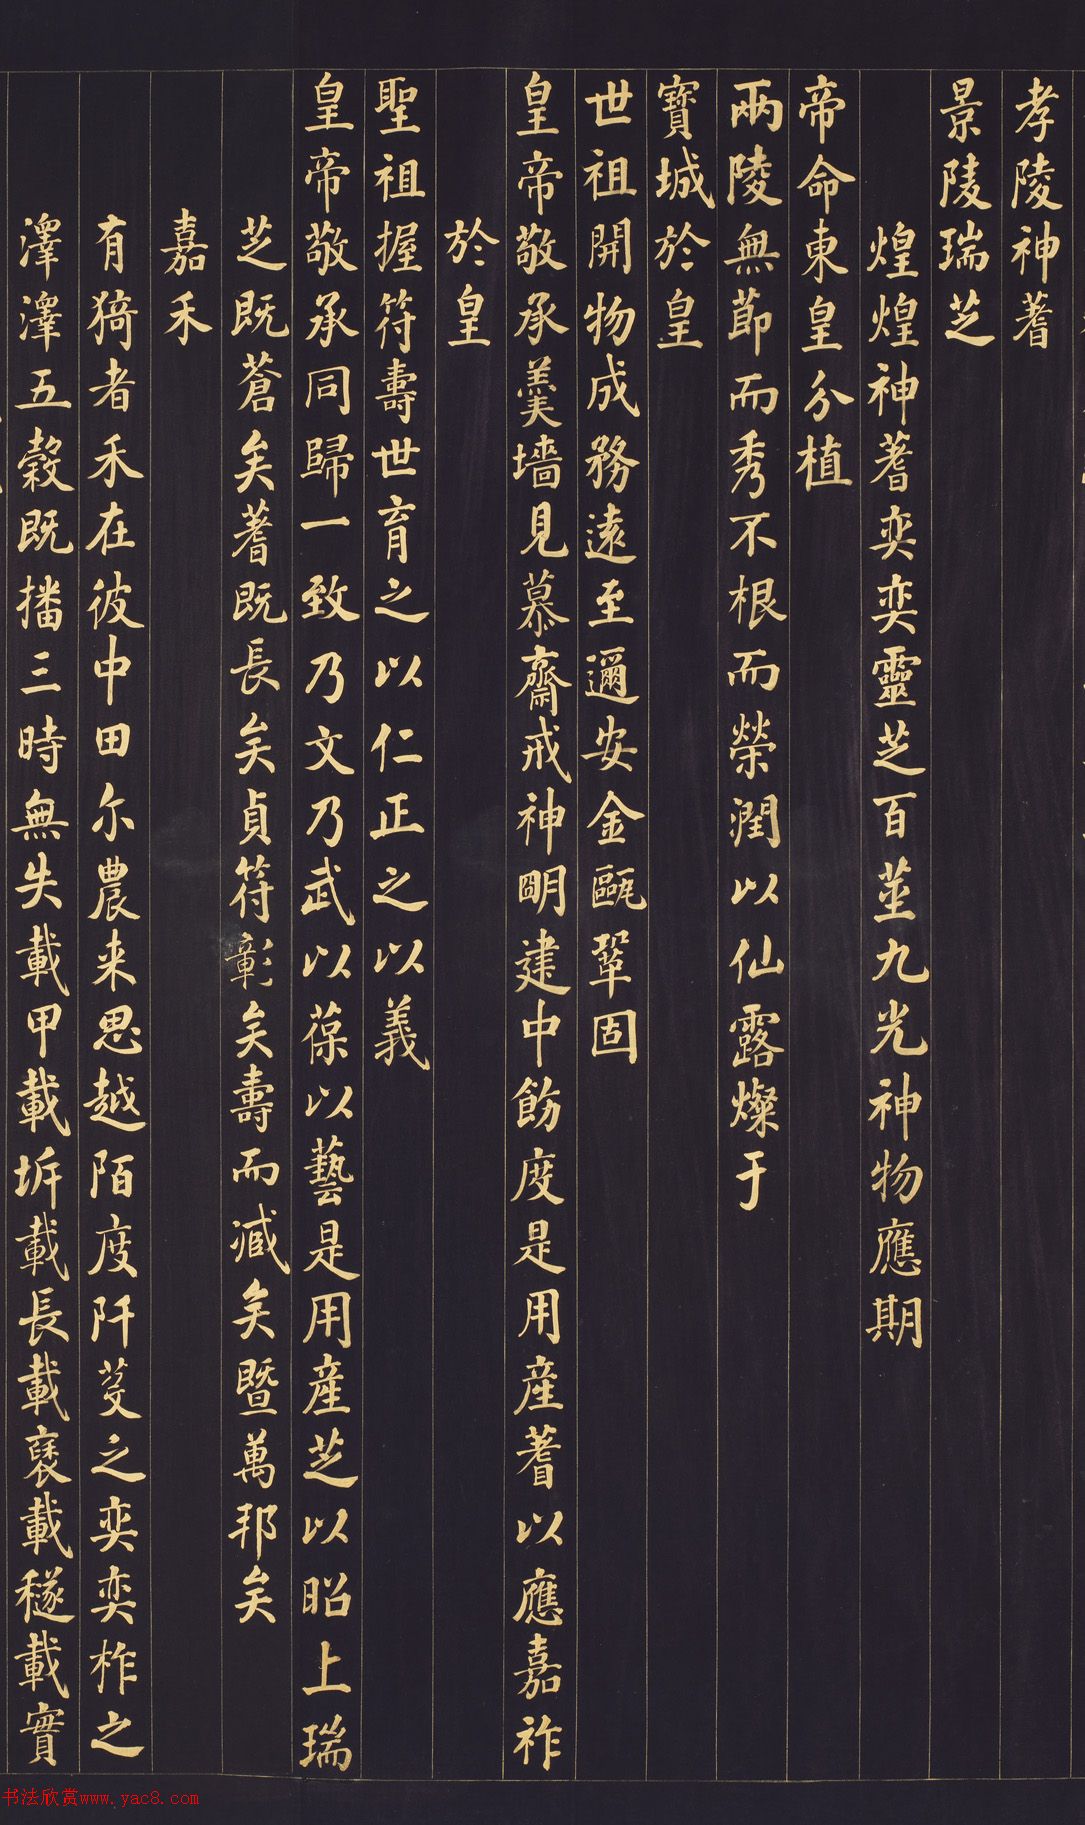 孝陵神蓍
景陵瑞芝
煌煌神蓍奕奕靈芝百莖九光神物應期
帝命東皇分植
兩陵無節而秀不根而榮潤以仙露燦于
寶城於皇
世祖開物成務遠至邇安金甌鞏固
皇帝敬承羹墻見慕齋戒神明建中飭度是用產蓍以應嘉祚
於皇
聖祖握符壽世育之以仁正之以義
皇帝敬承同歸一致乃文乃武以葆以藝是用產芝以昭上瑞
芝既蒼矣蓍既長矣貞符彰矣壽而臧矣暨萬邦矣
嘉禾
有猗者禾在彼中田尔農来思越陌度阡芟之奕奕柞之
澤澤五穀既播三時無失載甲載坼載長載褎載穟載實
书法欣赏www.yac8.com